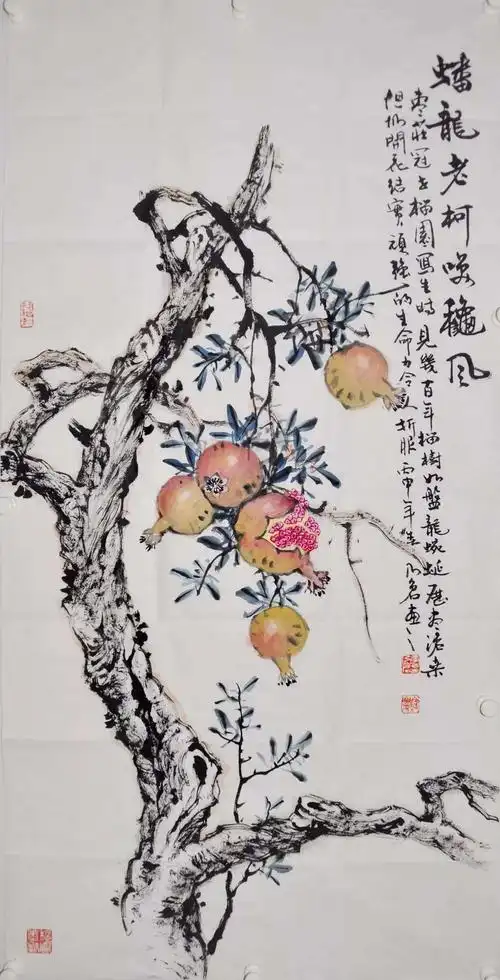 蟠龍老柯喚龝风
枣莊冠世榴園寫生時見幾百年榴樹如盤龍蜿蜒歷尽滄桑
但仍開花結實頑強的生命力令人折服丙申年
画之